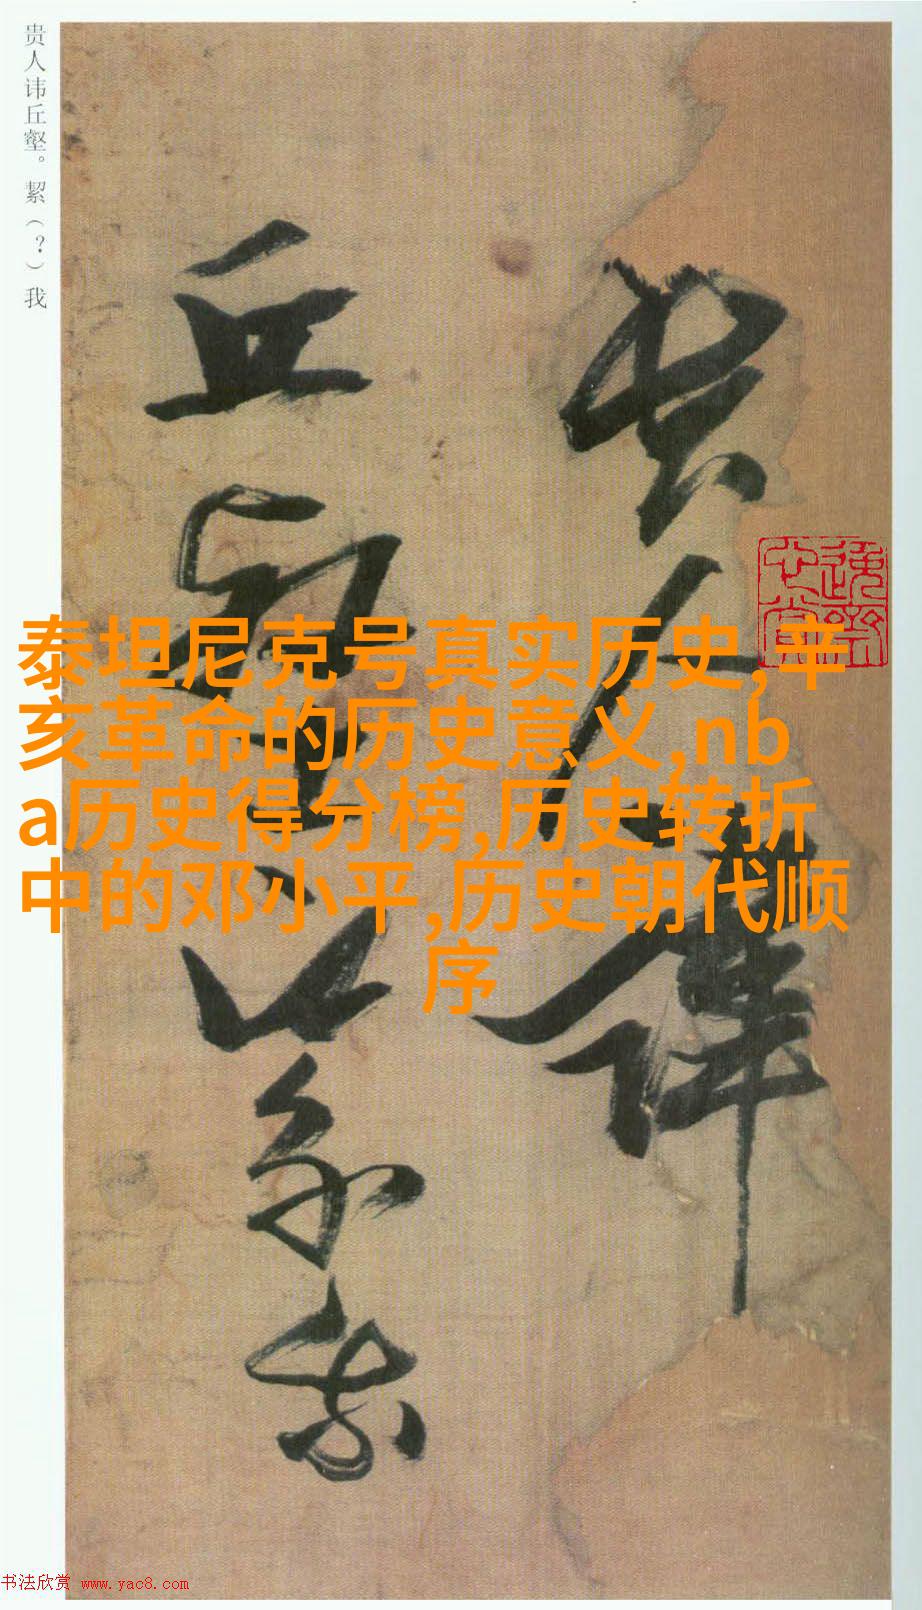 贵人讳丘壑。絜（？）我
贵人讳
丘壑
我
泰坦尼克号真实历史,辛
亥革命的历史意义,nb
a历史得分榜,历史转折
中的邓小平,历史朝代顺
序
书法欣赏 www.yac8.com